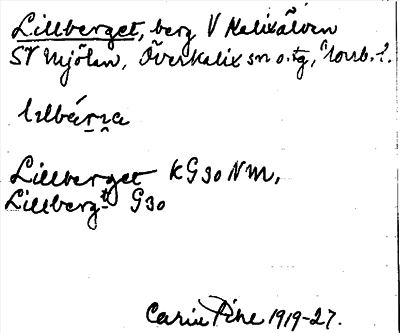 Lillberget, berg V Kalixälven
SV Mjölan, Överkalix sn o. tg, Norrb. l.
lılbárı̯a
Lillberget KG30NM,
Lillbergt G30
Carin Pihl 1919-27.